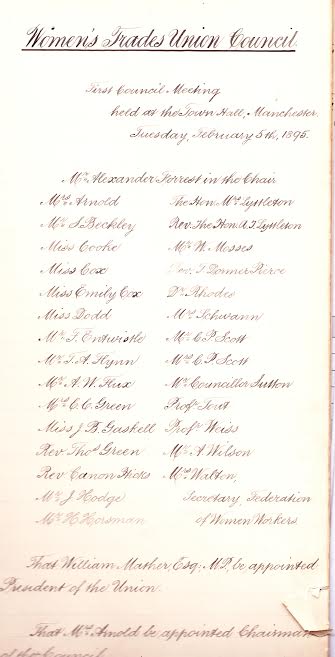 Women's Trades Union Council.
First Council Meeting
held at the Town Hall, Manchester.
Tuesday, February 5th, 1895.
Mr. Alexander Forrest in the Chair
Mrs. Arnold The Hon Mrs. Lyttleton
Mr. S. Beckley Rev. The Hon. A.T. Lyttleton
Miss Cooke Mr. W. Mosses
Miss Cox Rev. J Donner Pierce
Miss Emily Cox Dr. Rhodes
Miss Dodd Mrs. Schwann
Mr. T. Entwistle Mr. C P Scott
Mr. T.A. Flynn Mrs. C.P. Scott
Mr. A.W. Flux Mr. Councillor Sutton
Mrs. C.C. Green Profr. Tout
Miss J. B. Gaskell Profr. Weiss
Rev Thos. Green Mr. A. Wilson
Rev Canon Hicks Mrs. Walton,
Mr. J. Hodge Secretary, Federation
Mr. H. Horsman of Women Workers
That William Mather, Esq: M.P. be appointed
President of the Union.
That Mrs. Arnold be appointed Chairman
of the Council